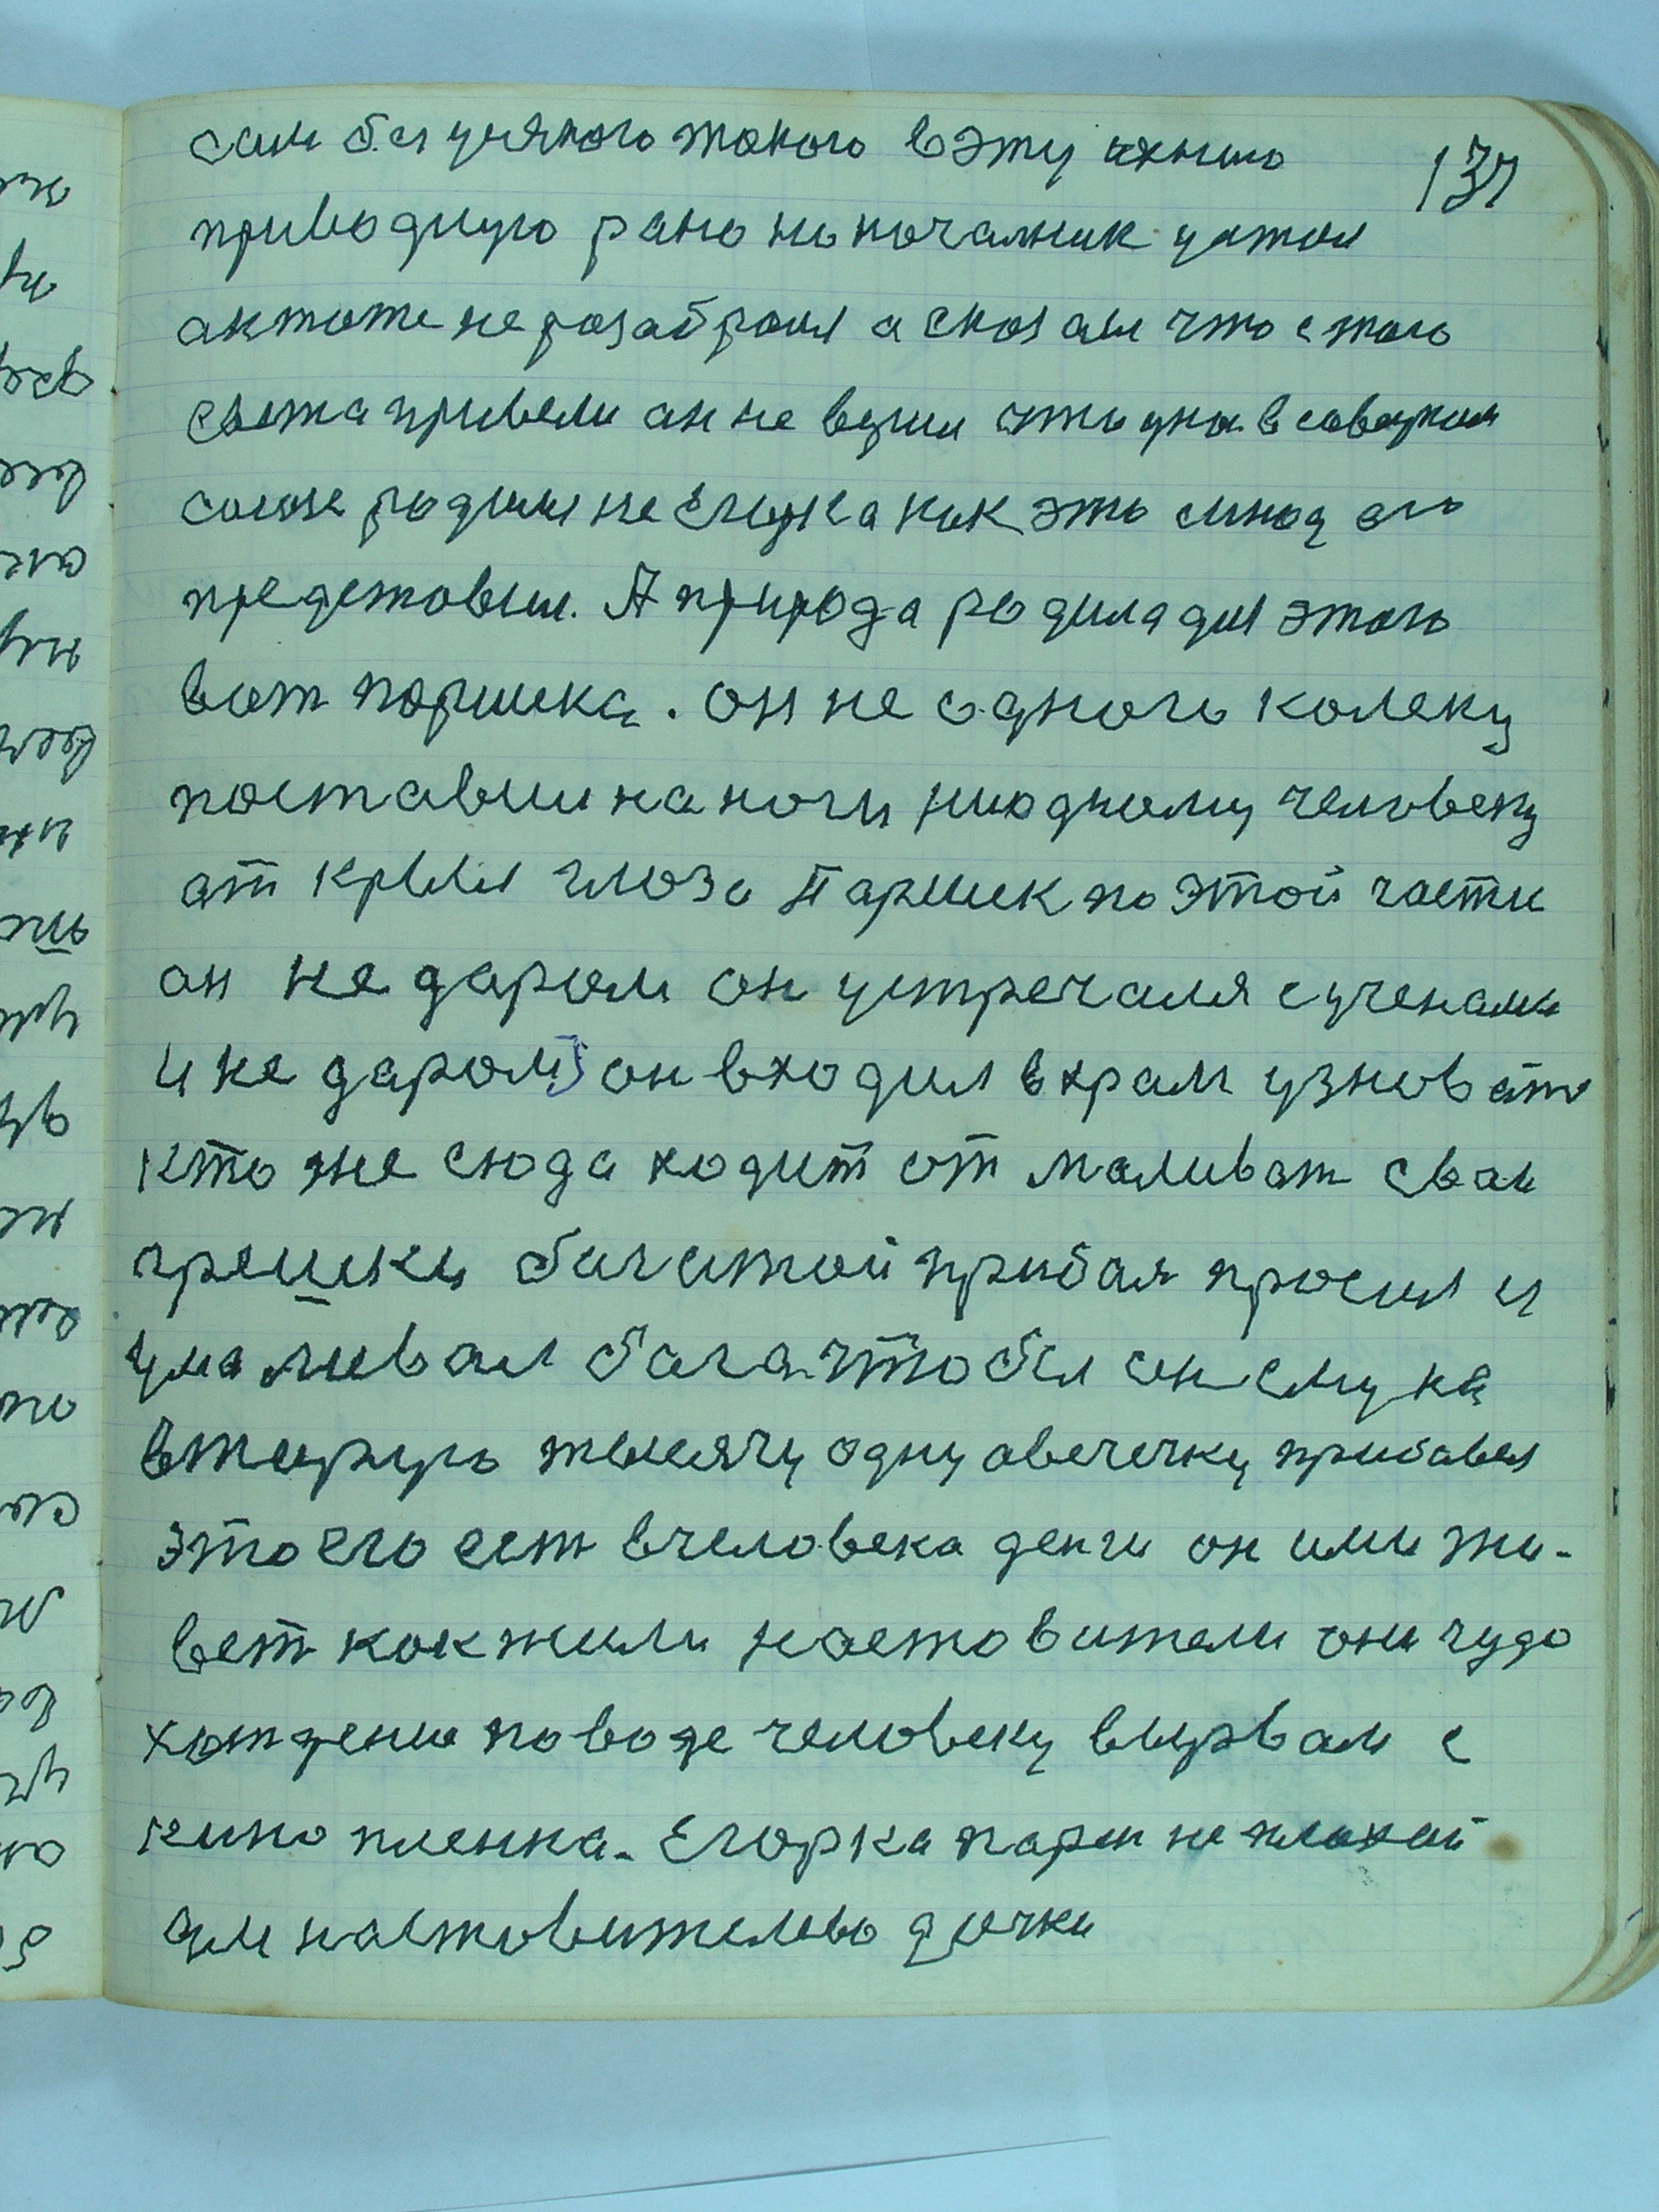 137
сам без умяного такого в эту ихнию
приводную рано но началник устои
актоже не разабраля а сказали что стого
света привели ани не верили что уна в совецким
союзе родили не Елука как это синод его
предетовили. А природа родила для этого
вот поршика. он не одного колеку
поставил наноги ниодному человеку
аткрыл глоза Паршик по этой части
он не даром он устречался сученами
и не даром он входил в храм узноват
кто же сюда ходит отмаливат сваи
грешки багатой прибоя просил и
умаливал бага чтобы он ему на
вторую тысячу одну авечечку прибавил
это его ест в человека денги он ими жи-
вет как жили настовители они чудо
хождение по воде человеку вырвали с
кино пленка. Егорка парен не плахой
для настовителево дочки